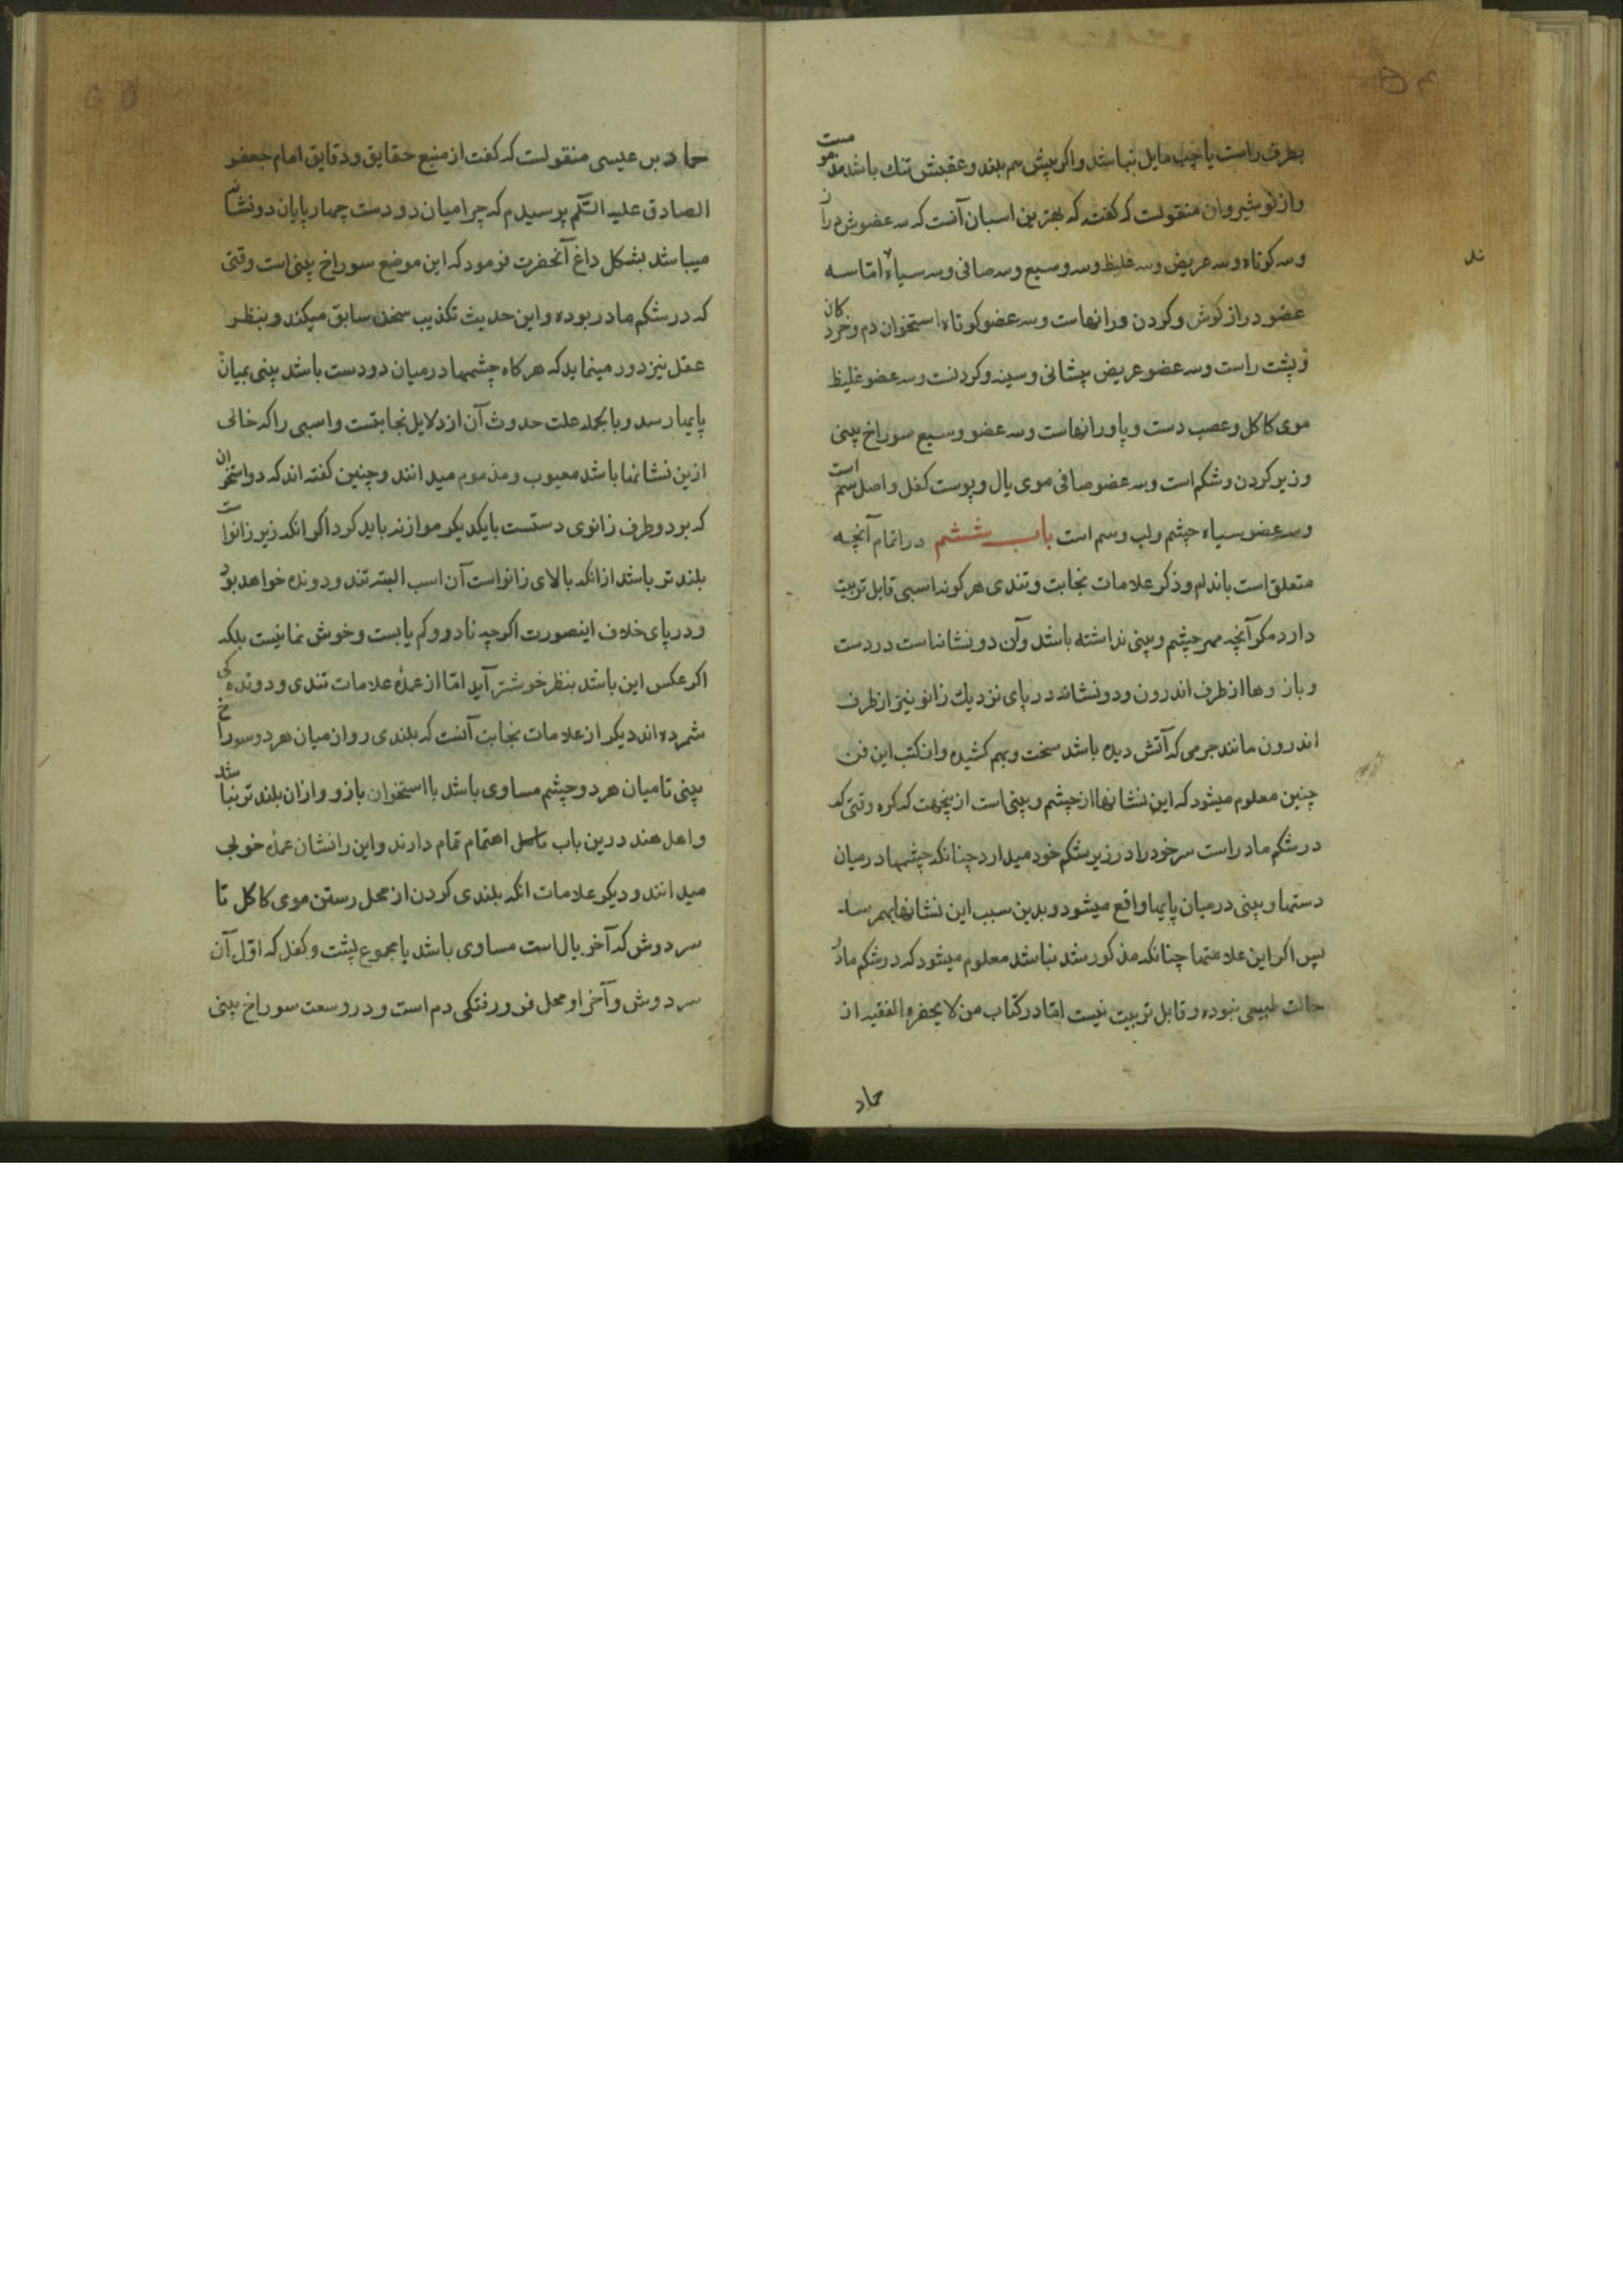 بطرف راست یا چپ مایل نباشد و اکر پیش سم بلند و عقبش تنک باشد مذمومست
و از نوشیروان منقولست که کفته که بهترین اسبان آنست که سه عضوش دراز
وسه کوتاه وسه عریض وسه غلیظ وسه وسیع وسه صافی وسه سیاه اما سه
عضو دراز کوش و کردن و رانهاست وسه عضو کوتاه استخوان دم و خردکان
و پشت راست وسه عضو عریض پیشانی و سینه و کردنست وسه عضو غلیظ
موی کاکل و عصب دست و پا و رانهاست وسه عضو وسیع سوراخ بینی
و زیر کردن و شکم است وسه عضو صافی موی یال و پوست کفل و اصل سم است
وسه عضو سیاه چشم و لب و سم است باب ششم در اتمام آنچه
متعلق است باندام و ذکر علامات نجابت و تندی هر کونه اسبی قابل تربیت
دارد مکر آنچه ممر چشم و بینی نداشته باشد و آن دو نشانناست در دست
و بازوها از طرف اندرون و دو نشانه در پای نزدیک زانو نیز از طرف
اندرون مانند جرمی که آتش دیده باشد سخت و بهم کشیده و از کتب این فن
چنین معلوم میشود که این نشانها از چشم و بینی است ازینجهت که کره وقتی که
در شکم مادر است سر خود را در زیر شکم خود میدارد چنانکه چشمها در میان
دستها و بینی در میان پایها واقع میشود و بدین سبب این نشانها بهم رسد
پس اکر این علامتها چنانکه مذکور شد نباشد معلوم میشود که در شکم مادر
حالت طبیعی نبوده و قابل تربیت نیست اما در کتاب من لا یحضره الفقیه از
حماد
حماد بن عیسی منقولست که کفت از منبع حقایق و دقایق امام جعفر
الصادق علیه السّلم پرسیدم که چرا میان دو دست چهارپایان دو نشان
میباشد بشکل داغ آنحضرت فرمود که این موضع سوراخ بینی است وقتی
که در شکم مادر بوده و این حدیث تکذیب سخن سابق میکند و بنظر
عقل نیز دور مینماید که هرکاه چشمها در میان دو دست باشد بینی بمیان
پایها رسد و بالجمله علت حدوث آن از دلایل نجابتست و اسبی را که خالی
ازین نشانها باشد معیوب و مذموم میدانند و چنین کفته اند که دو استخوان
که بر دو طرف زانوی دستست با یکدیکر موازنه باید کرد اکر انکه زیر زانواست
بلندتر باشد از انکه بالای زانواست آن اسب البته تند و دونده خواهد بود
و در پای خلاف اینصورت اکرچه نادر و کم یابست و خوش نمانیست بلکه
اکر عکس این باشد بنظر خوشتر آید اما از عمدۀ علامات تندی و دوندکی
شمرده اند دیکر از علامات نجابت آنست که بلندی رو از میان هر دو سوراخ
بینی تا میان هر دو چشم مساوی باشد با استخوان بازو و ازان بلندتر نباشد
و اهل هند درین باب اهتمام تمام دارند و این را نشان عمده خوبی
میدانند و دیکر علامات انکه بلندی کردن از محل رستن موی کاکل تا
سر دوش که آخر یال است مساوی باشد با مجموع پشت و کفل که اول آن
سر دوش و آخر او محل فرو رفتکی دم است و در وسعت سوراخ بینی